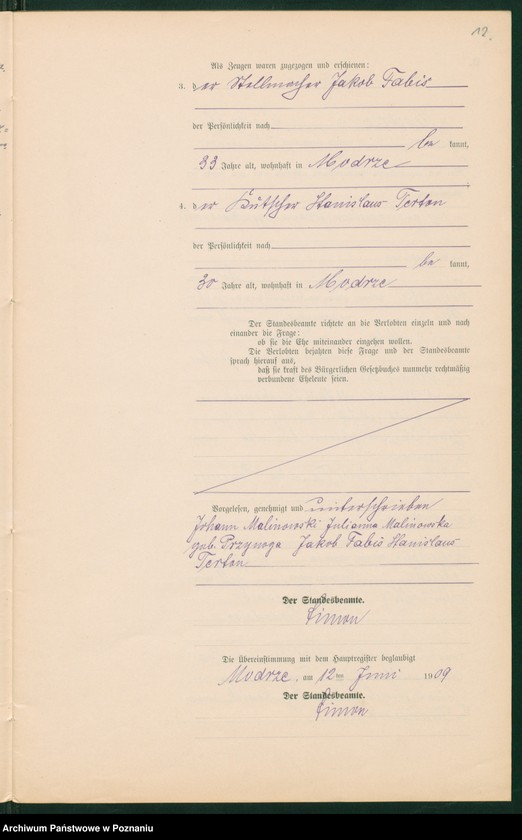 12.
Als Zeugen waren zugezogen und erschienen:
3. der Stellmacher Jakob Fabis
der Persönlichkeit nach
be kannt,
33 Jahre alt, wohnhaft in Modrze
;
4. der Kutscher Stanislaus Terton
der Persönlichkeit nach
be kannt,
30 Jahre alt, wohnhaft in Modrze
Der Standesbeamte richtete an die Verlobten einzeln und nach
einander die Frage:
ob sie die Ehe miteinander eingehen wollen.
Die Verlobten bejahten diese Frage und der Standesbeamte
sprach hierauf aus,
daß sie kraft des Bürgerlichen Gesetzbuchs nunmehr rechtmäßig
verbundene Eheleute seien.
Vorgelesen, genehmigt und unterschrieben
Johann Malinowski Julianna Malinowska
geb. Przynoga Jakob Fabis Stanislaus
Terton
Der Standesbeamte.
Simon
Die Übereinstimmung mit dem Hauptregister beglaubigt
Modrze, am 12ten Juni 1909
Der Standesbeamte.
Simon
Archiwum Państwowe w Poznaniu